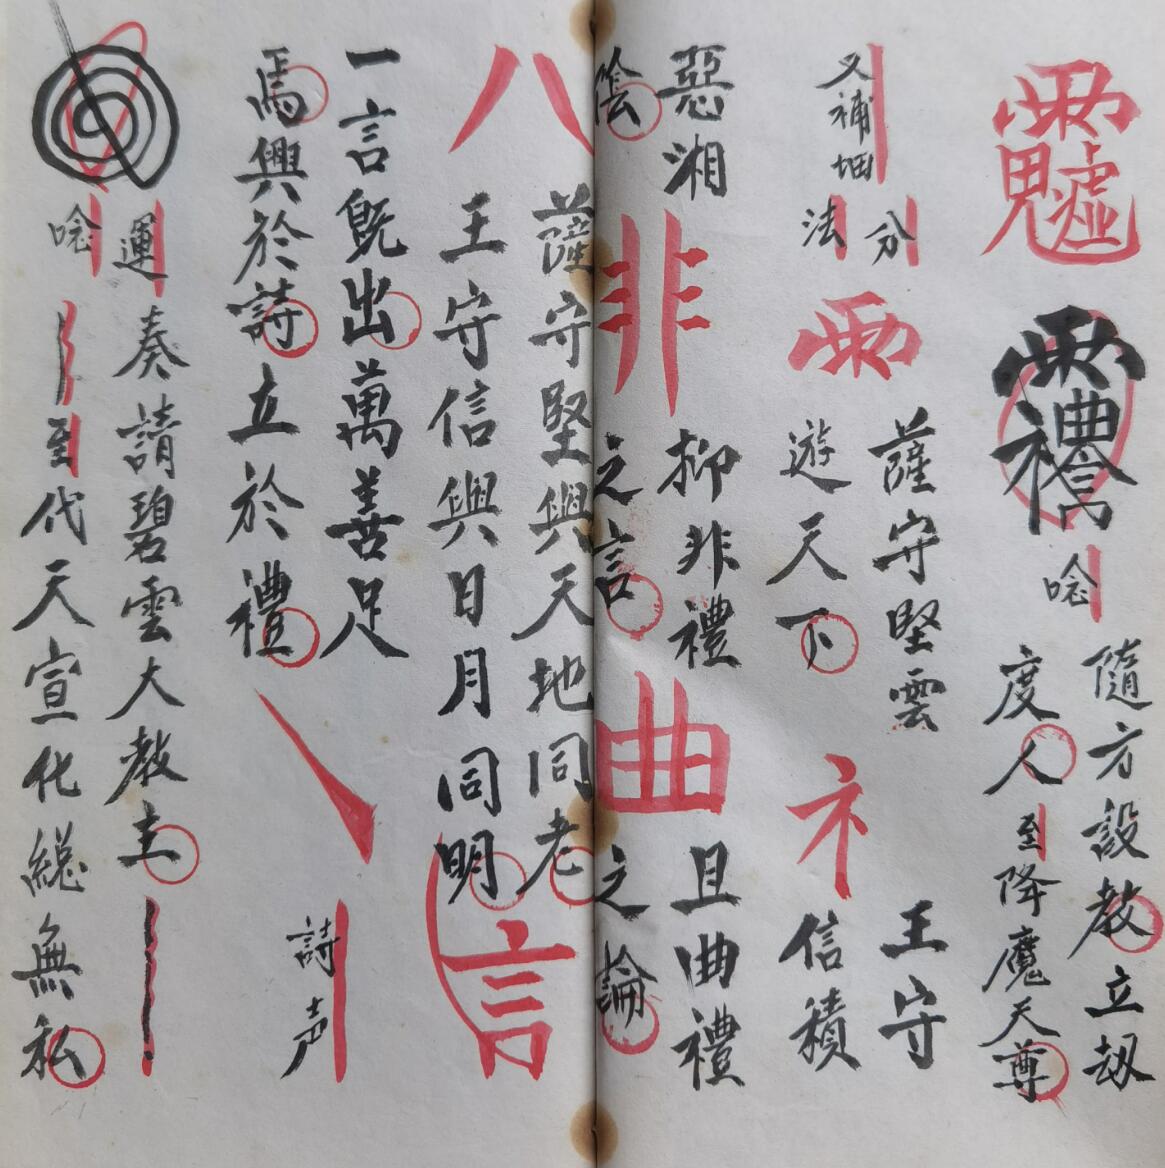 唸
隨方設教立劫
度人
至
降魔天尊
又補
分
法
薩守堅雲
遊天下
礻
王守
信積
惡湘
陰
非
抑非禮
之言
曲
且曲禮
之論
八
薩守堅與天地同老
王守信與日月同明
言
一言既出萬善足
焉興於詩立於禮
丶
詩声
運奏請碧雲大教主
唸
至
代天宣化総無私